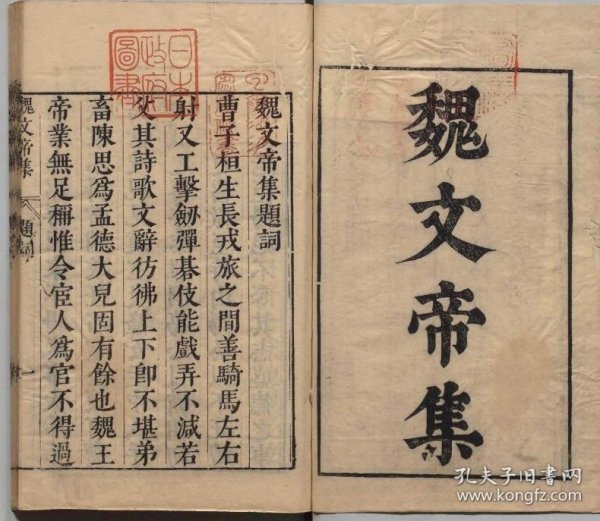 魏文帝集
魏文帝集題詞
曹子桓生長戎旅之間善騎馬左右
射又工擊劒彈棊伎能戲弄不減若
父其詩歌文辭彷彿上下卽不堪弟
畜陳思爲孟德大兒固有餘也魏王
帝業無足稱惟令宦人爲官不得過
魏文帝集
題詞
一
日本
政府
圖書
孔夫子旧书网
www.kongfz.com